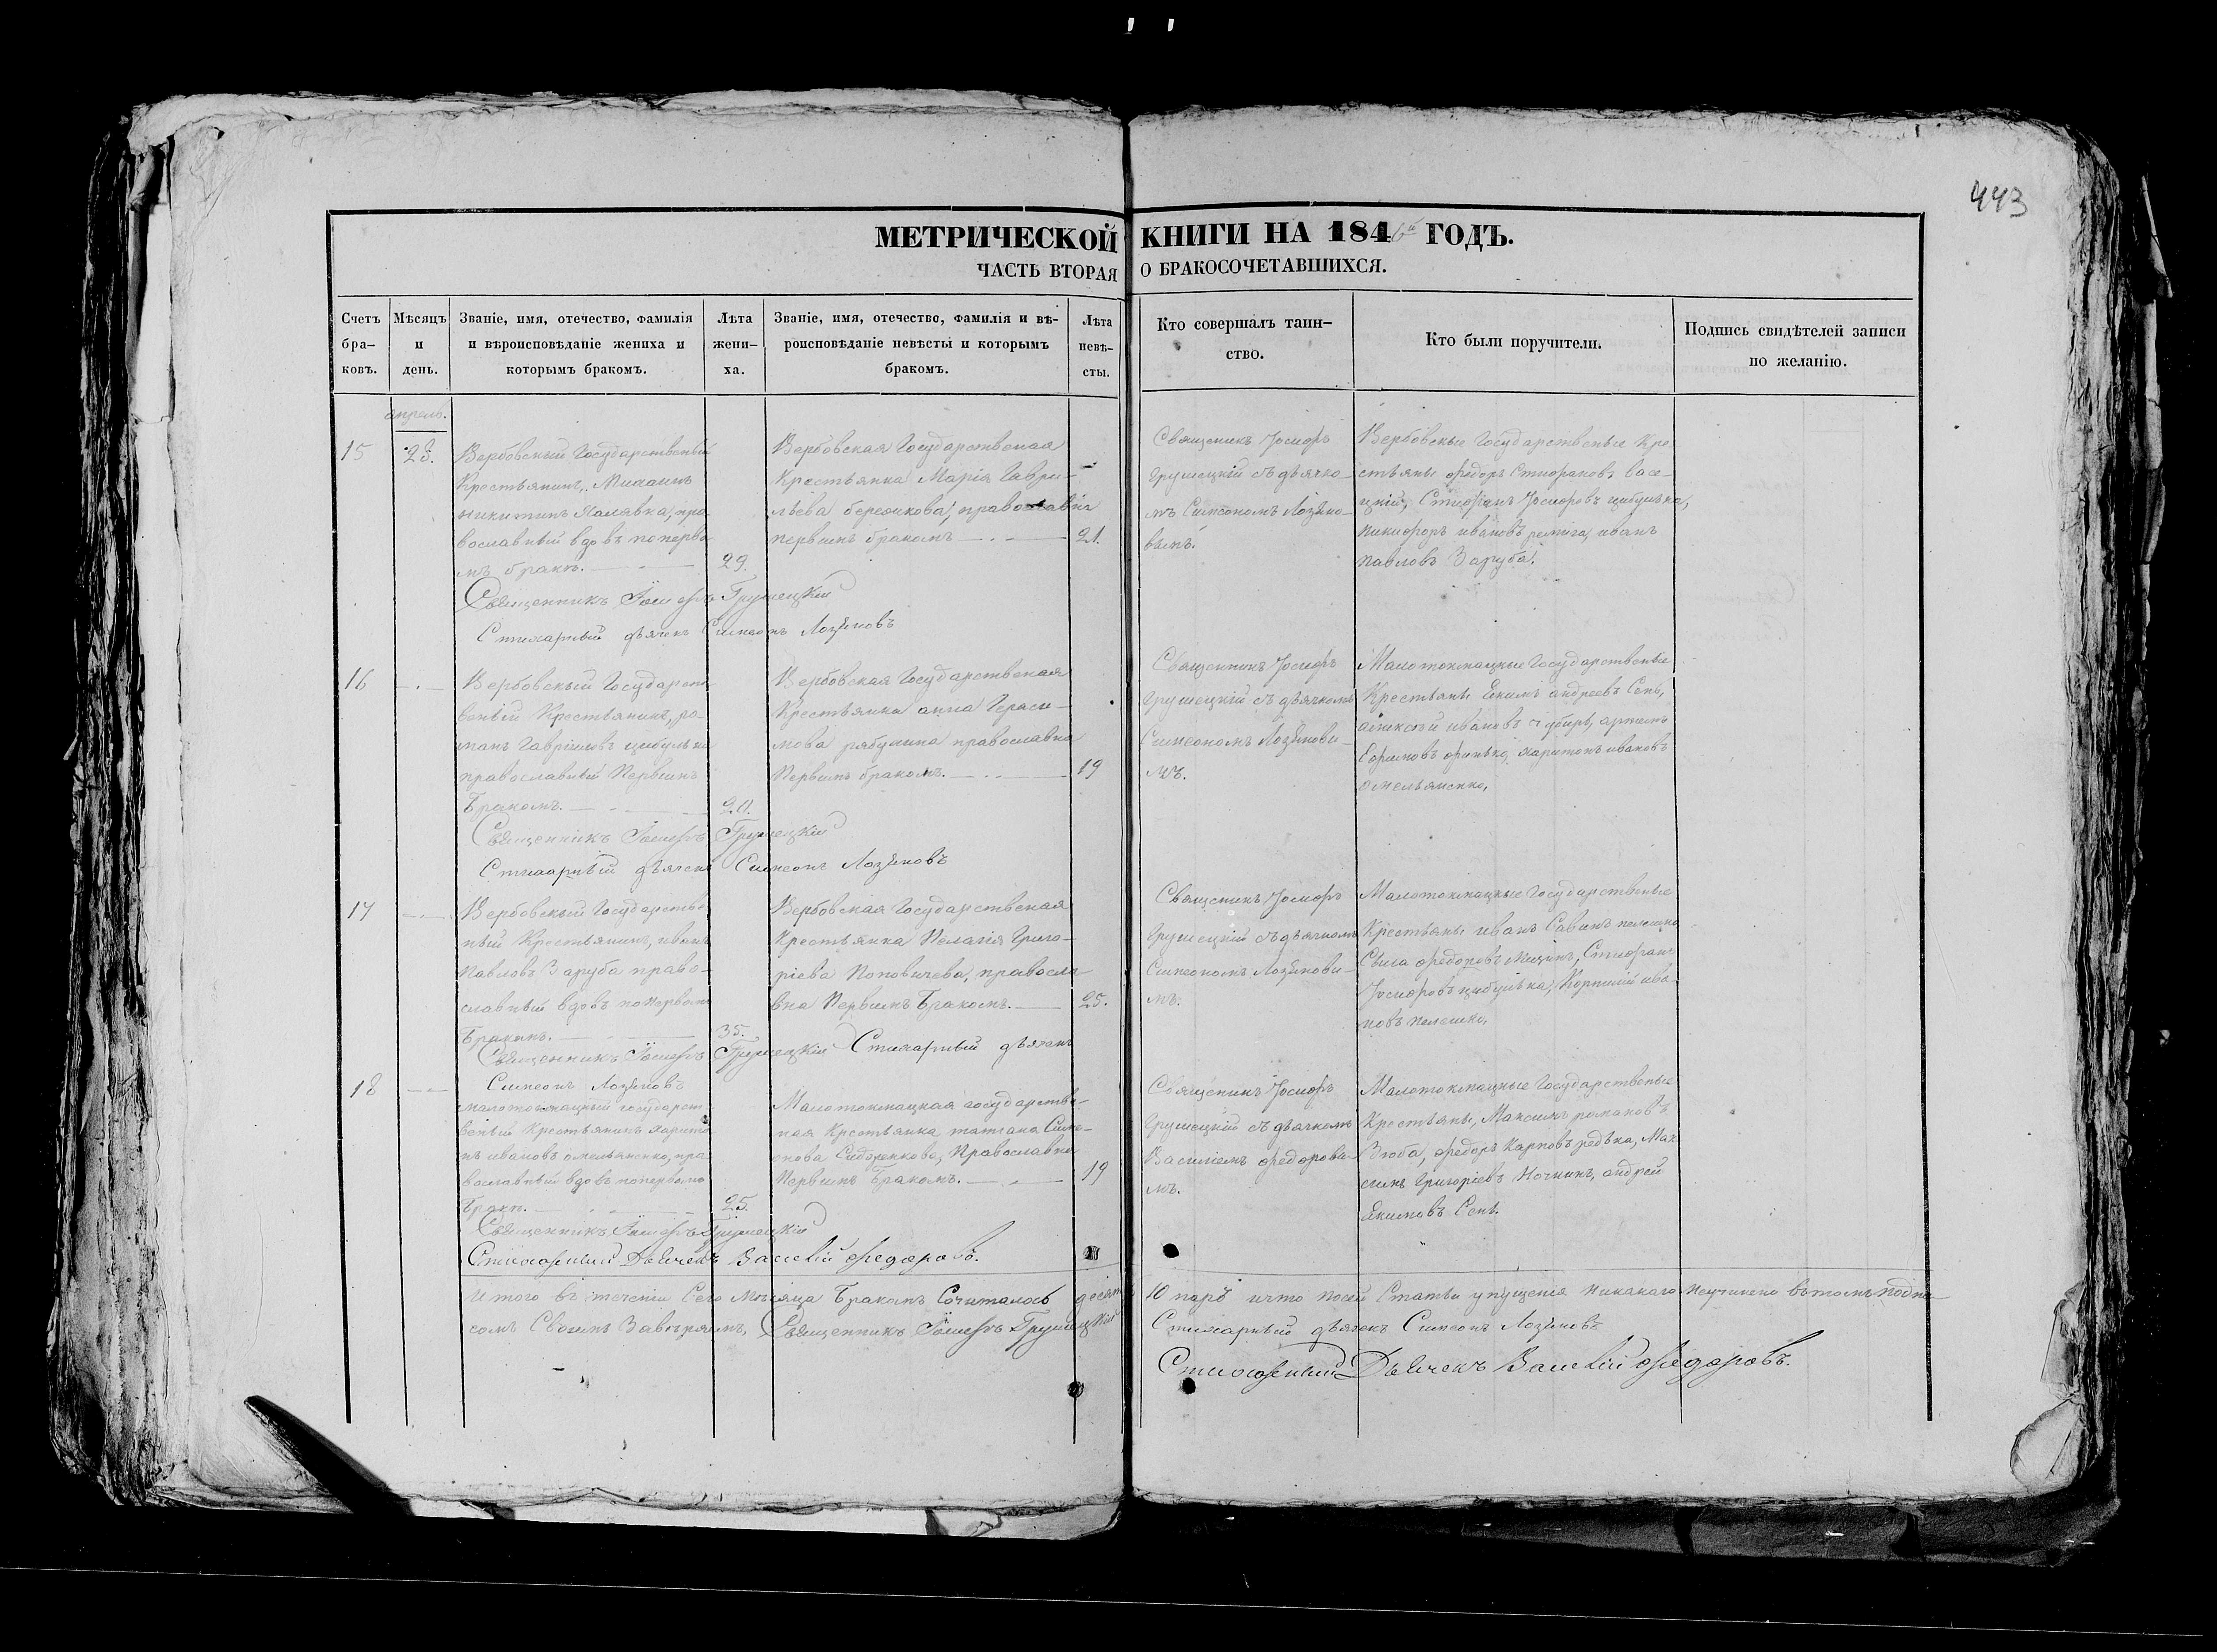 443
МЕТРИЧЕСКОЙ КНИГИ НА 1846й ГОДЪ.
ЧАСТЬ ВТОРАЯ О БРАКОСОЧЕТАВШИХСЯ.
Счетъ бра-
ковъ.
Мѣсяцъ
и
день.
Званіе, имя, отечество, фамилія
и вѣроисповѣданіе жениха и
которымъ бракомъ.
Лѣта
жени-
ха.
Званіе, имя, отечество, фамилія и вѣ-
роисповѣданіе невѣсты и которымъ
бракомъ.
Лѣта
невѣ-
сты.
Кто совершалъ таин-
ство.
Кто были поручители.
Подпись свидѣтелей записи
по желанію.
апрель.
15
28.
Вербовскый Государственый
Крестьянинъ, Михаилъ
никитинъ Халявка, пра
вославный вдовъ поперво
мъ бракѣ.
29.
Вербовская Государственая
Крестьянка Марія Гаври-
лѣева березикова, православна
первымъ бракомъ
21.
Священикъ Іосифъ
Грушецкій съ дѣячко
мъ Симеономъ Лозѣно-
вымъ.
Вербовскые Государственые Кре
стьяны федоръ Стифановъ васе-
цкій, Стифанъ Іосифовъ цибулька,
никифоръ ивановъ иванъ
павловъ Заруба.
Священникъ Іосифъ Грушецкій
Стихарный дѣячекъ Симеонъ Лозѣновъ
16
Вербовскый Государст-
веный Крестьянинъ, ро-
манъ Гавріиловъ цибулька
православный Первымъ
Бракомъ.
20.
Вербовская Государственая
Крестьянка анна Гераси-
мова рябухина православна
Первымъ бракомъ.
19
Священникъ Іосифъ
Грушецкій съ дѣячкомъ
Симеономъ Лозѣновы-
мъ.
Малотокмацкые Государственые
Крестьяны Екимъ андреевъ Сепь,
алексѣй ивановъ чубирь, артемъ
Ефимовъ финько, харитонъ ивановъ
омельяненко,
Священникъ Іосифъ Грушецкій
Стихарный дѣячекъ Симеонъ Лозѣновъ
17
Вербовскый Государстве
ный Крестьянинъ, иванъ
Павловъ Заруба право-
славный вдовъ попервом
Бракомъ.
35.
Вербовская Государственая
Крестьянка Пелагія Григо-
ріева Поповичева, правосла
вна Первымъ Бракомъ.
25.
Священикъ Іосифъ
Грушецкій съ дѣячкомъ
Симеономъ Лозѣновы-
мъ.
Малотокмацкые Государственые
Крестьяны иванъ Савинъ
Сыла федоровъ Мицинъ, Стифанъ
Іосифовъ цибулька, Корнилій ива
новъ
Священникъ Іосифъ Грушецкій Стихарный дѣячекъ
Симеонъ Лозѣновъ
18
малотокмацкый государст
веный Крестьянинъ харито
нъ ивановъ омельяненко, пра
вославный вдовъ попервомъ
Бракѣ.
25.
Малотокмацкая государстве-
ная Крестьянка татиана Симе-
онова Сидоренкова, Православна
Первымъ Бракомъ.
19
Священикъ Іосифъ
Грушецкій съ дѣячкомъ
Василіемъ федоровы-
мъ.
Малотокмацкые Государственые
Крестьяны, Максимъ романовъ
Зюба, федоръ Карповъ редька, Мак
симъ Григоріевъ Ночкинъ, андрей
Екимовъ Сепь.
Священникъ Іосифъ Грушецкій
Стихарный Дьячекъ Василій Федоровъ.
Итого въ теченіи Сего Месяца Бракомъ Сочиталось десят 10 паръ ичто посей Статьи упущенія никакаго неучинено вътомъ подпи-
сомъ Своимъ Заверяемъ, Священникъ Іосифъ Грушецкій Стихарный дѣячекъ Симеонъ Лозѣновъ
Стихарный Дьячекъ Василій Федоровъ.